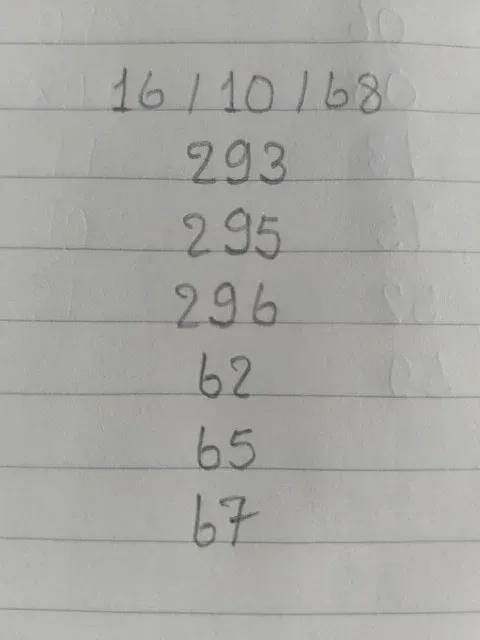 16/10/68
293
295
296
62
65
67